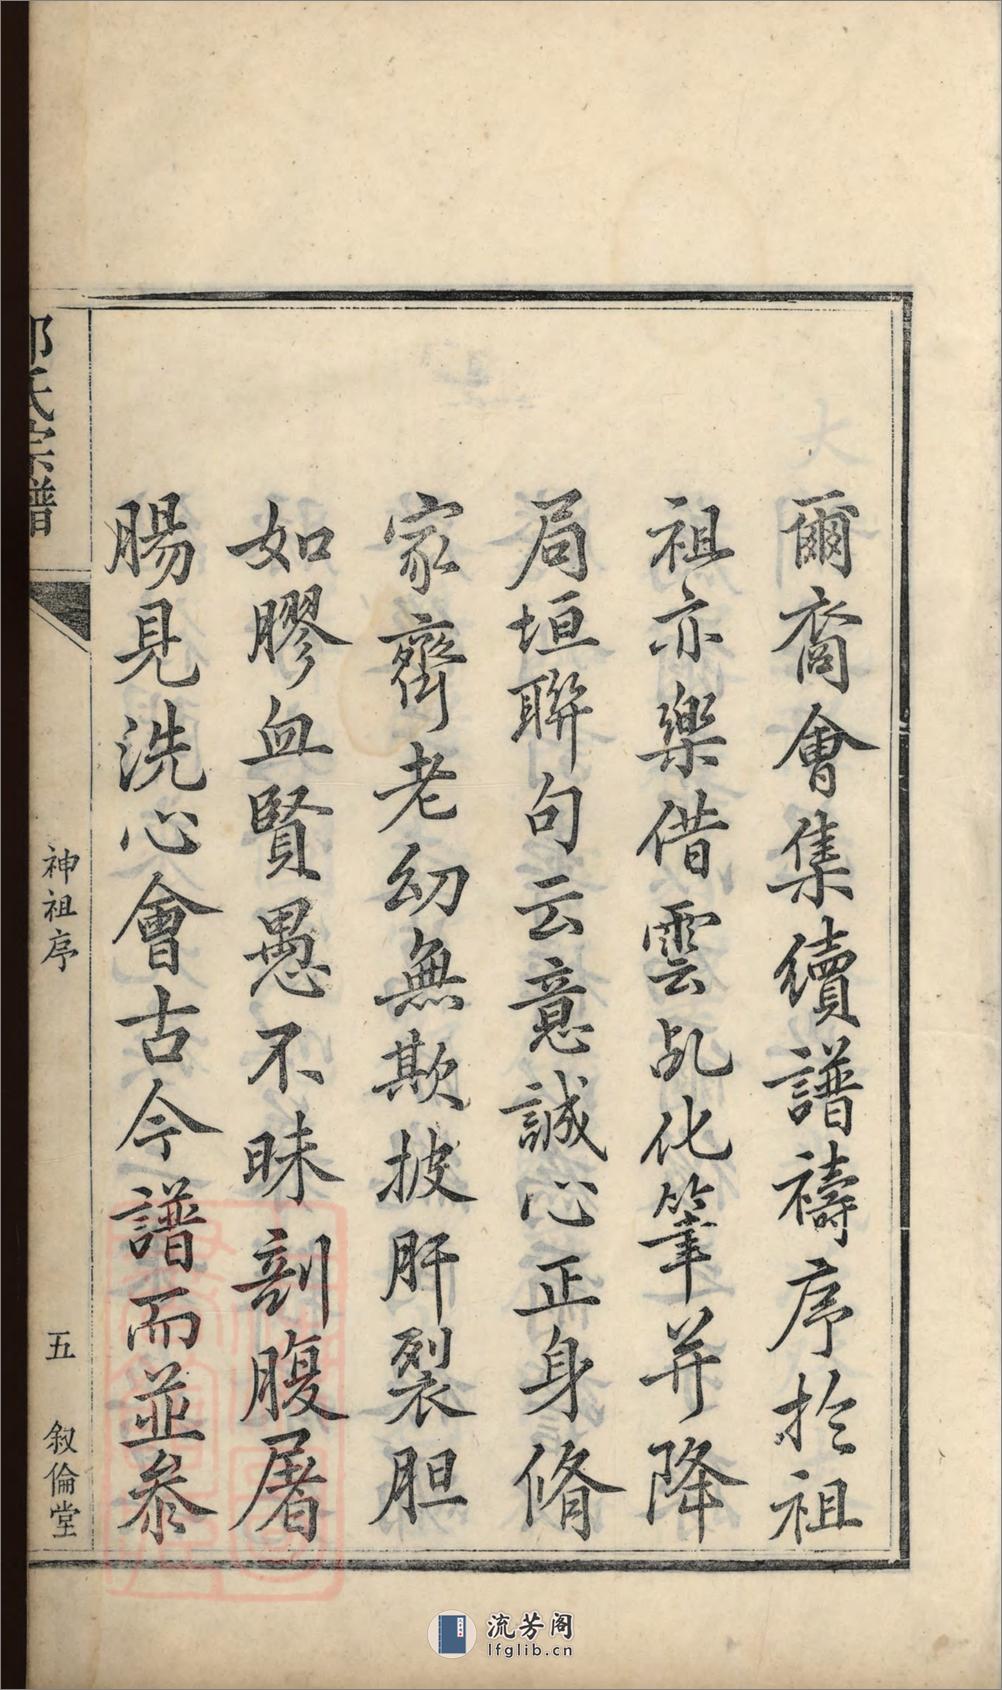 爾裔會集續譜禱序於祖
祖亦樂借雲乩化筆并降
局垣聯句云意誠心正身脩
家齊老幼無欺披肝裂胆
如膠血賢愚不昧剖腹屠
腸見洗心會古今譜而並參
氏宗譜
神祖序
五
叙倫堂
流芳阁
lfglib.cn